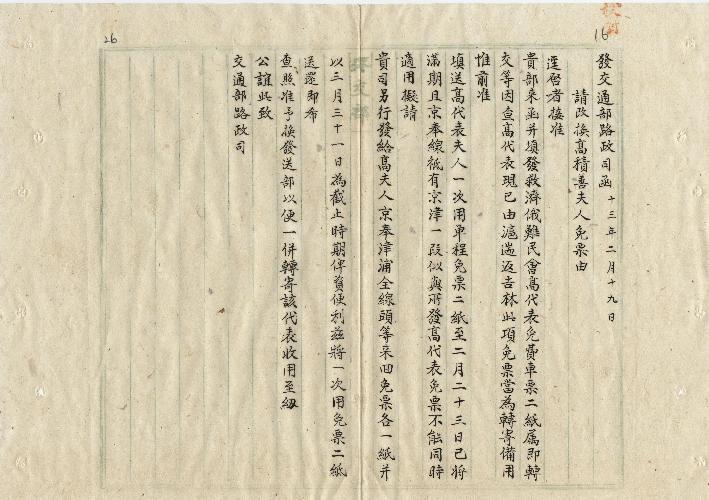 16
發交通部路政司函 十三年二月十九日
請改換高積善夫人免票由
逕啓者接准
貴部來函并填發救濟俄難民會高代表免費車票二紙屬即轉
交等因查高代表現已由滬遄返吉林此項免票當為轉寄備用
惟前准
填送高代表夫人一次用單程免票二紙至二月二十三日已將
滿期且京奉線祗有京津一段似與所發高代表免票不能同時
適用擬請
貴司另行發給高夫人京奉津浦全線頭等來回免票各一紙并
以三月三十一日為截止時期俾資便利茲將一次用免票二紙
送還即希
查照准予換發送部以便一併轉寄該代表收用至紉
公誼此致
交通部路政司
26